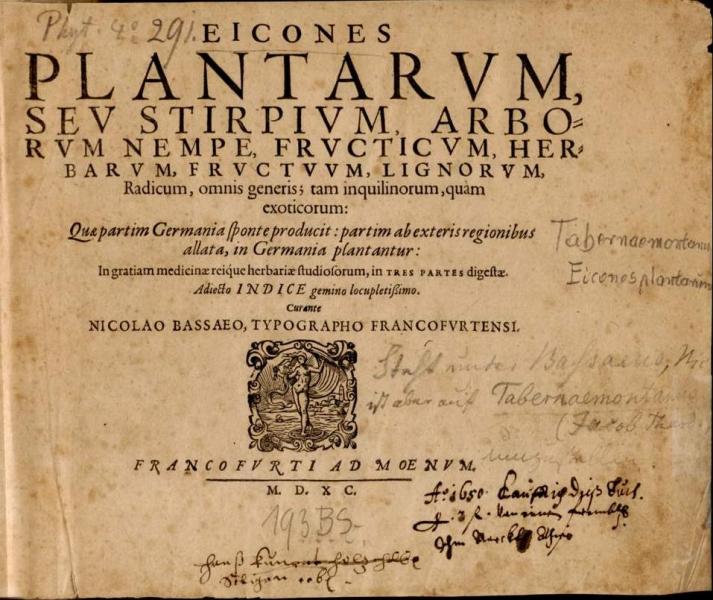 Phyt. 4° 291.
EICONES
PLANTARVM,
SEV STIRPIVM, ARBO=
RVM NEMPE, FRVCTICVM, HER=
BARVM, FRVCTVVM, LIGNORVM,
Radicum, omnis generis; tam inquilinorum, quàm
exoticorum:
Quæ partim Germania ſponte producit: partim ab exteris regionibus
allata, in Germania plantantur:
In gratiam medicinæ reique herbariæ ſtudioſorum, in TRES PARTES digeſtæ.
Adiecto INDICE gemino locupletiſsimo.
Curante
NICOLAO BASSAEO, TYPOGRAPHO FRANCOFVRTENSI.
Tabernaemontanus
Eicones plantarum
unter Bassaeus, Nic
ist aber auf Tabernaemontanus
(Jacob Theod.
FRANCOFVRTI AD MOENVM.
M. D. XC.
193.BS.
A° 1650